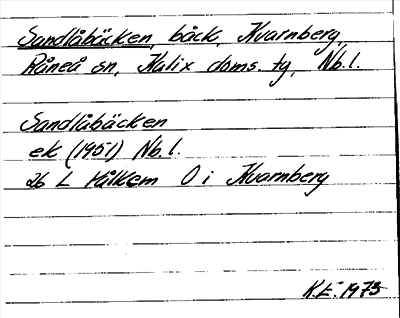 Sandlåbäcken, bäck, Kvarnberg,
Råneå sn, Kalix doms. tg, Nb.l.
Sandlåbäcken
ek (1951) Nb.l.
26 L Hålkem O i Kvarnberg
K.E. 1973